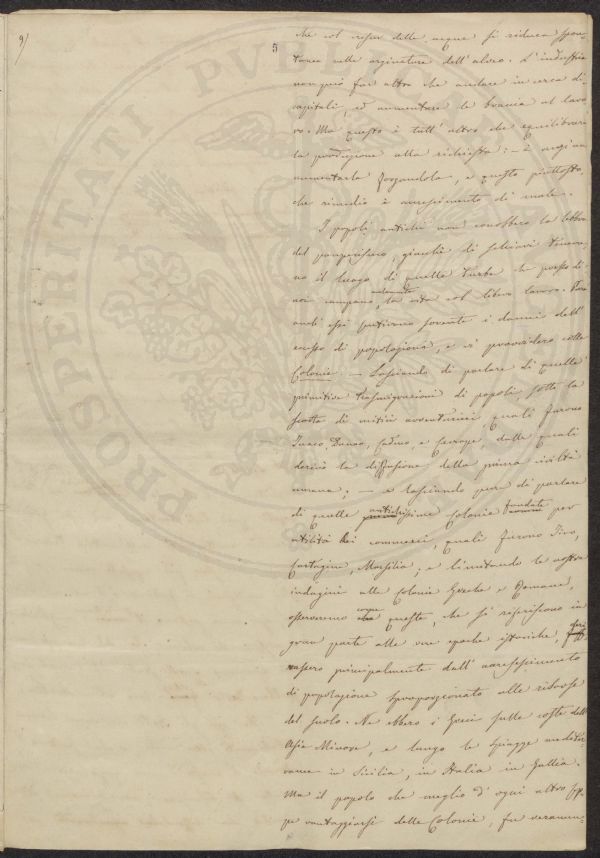 9)
5
che col crescer delle acque si riduca spon-
tanea nelle arginature dell'alveo. L'industria
non può far altro che andare in cerca di
capitali, ed aumentare le braccia al lavo-
ro. Ma questo è tutt'altro che equilibrare
la produzione alla richiesta: — è anzi un
aumentarla forzandola, e questo piuttosto
che rimedio è accrescimento di male.
I popoli antichi non conobbero la lebbra
del pauperismo, giacchè gli schiavi tenea-
no il luogo di quelle turbe che presso di
noi campano la vita col libero lavoro. Pur
anch'essi sentirono sovente i danni dell'
eccesso di popolazione, e vi provvidero colle
Colonie — Lasciando di parlare di quelle
primitive trasmigrazioni di popoli sotto la
scorta di mitici avventurieri, quali furono
Inaco, Danao, Cadmo, e Cecrope, dalle quali
derivò la diffusione della prima civiltà
umana; — e lasciando pure di parlare
di quelle antichissime Colonie fondate per
utilità dei commerci, quali furono Tiro,
Cartagine, Marsilia; e limitando le nostre
indagini alle Colonie Greche e Romane,
osserveremo come queste, che si riferiscono in
gran parte alle vere epoche istoriche, deri-
vassero principalmente dall'accrescimento
di popolazione sproporzionato alle risorse
del suolo. Ne ebbero i Greci sulle coste dell'
Asia Minore, e lungo le spiagge mediter-
ranee in Sicilia, in Italia in Gallia.
Ma il popolo che meglio d'ogni altro sep-
pe vantaggiarsi delle Colonie, fu veramen-
PROSPERITATI PVBLICAE